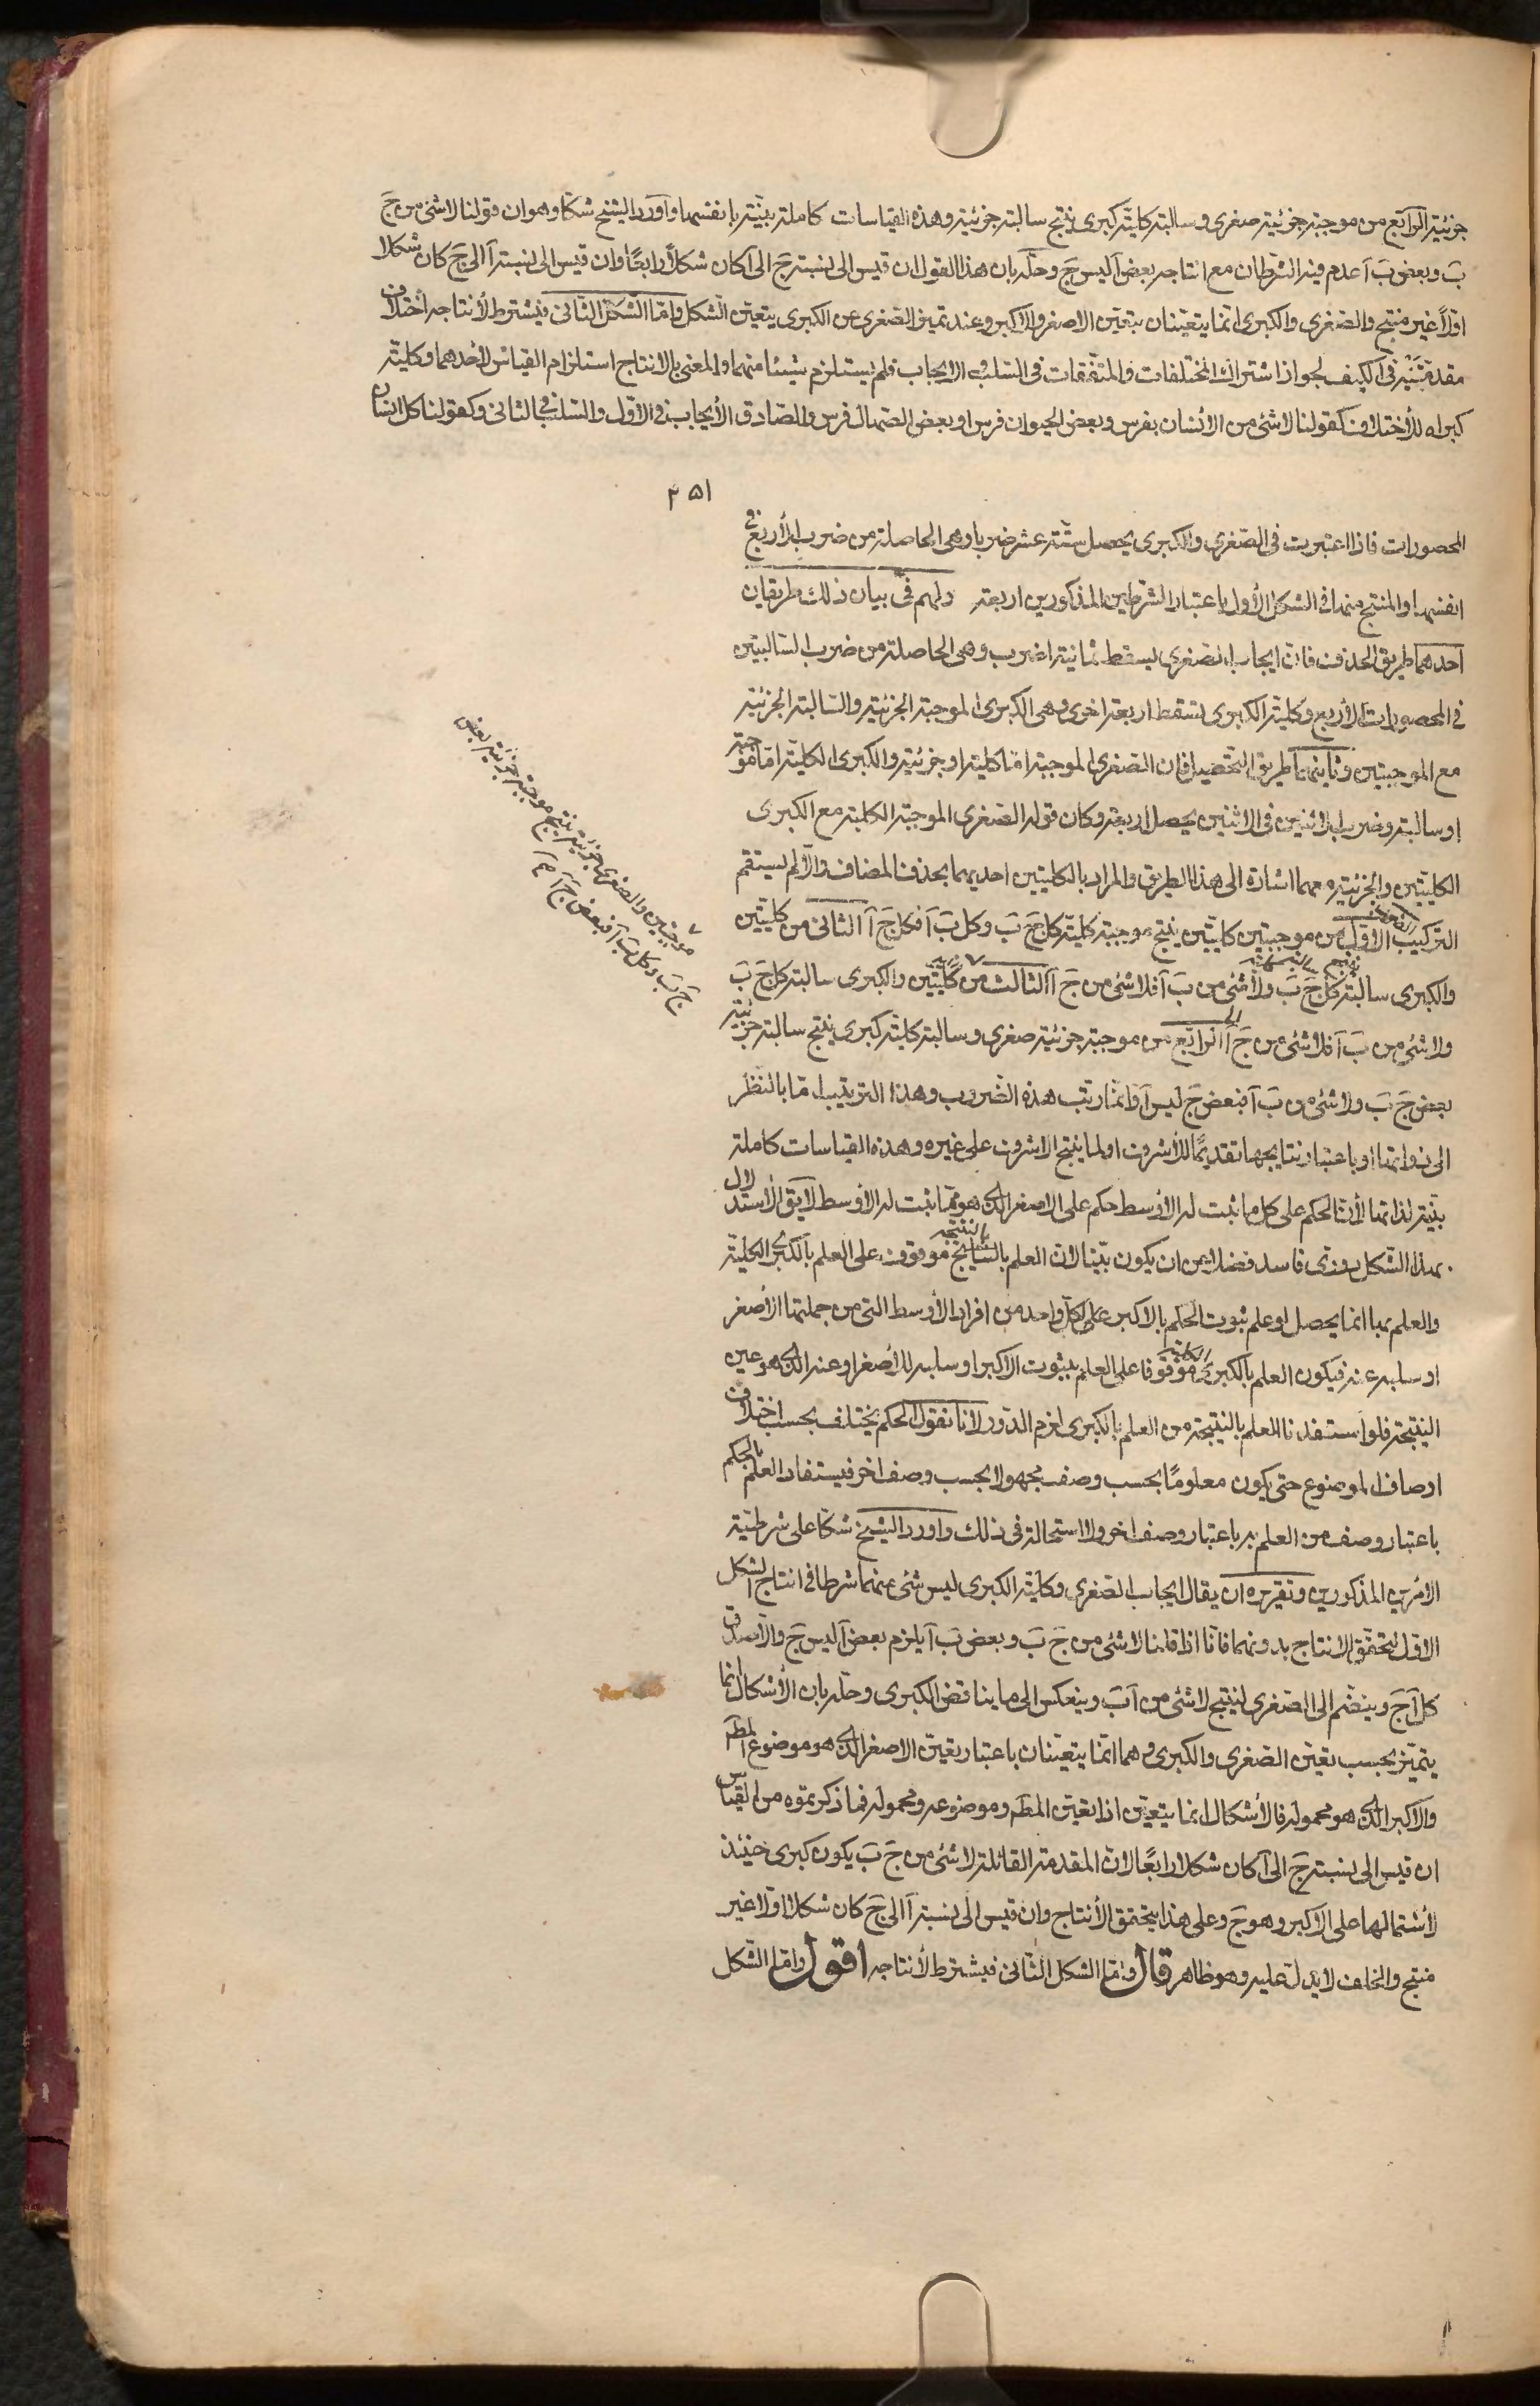 جزئية الرابع من موجبة جزئية صغرى وسالبة كلية كبرى ينتج سالبة جزئية وهذه القياسات كاملة بينة بانفسها واورد الشيخ شكا وهو ان قولنا لا شئ من جَ
بَ وبعض بَ آ عدم فيه الشرطان مع انتاجه بعض آ ليس جَ وحله بان هذا القول ان قيس الى نسبة جَ الى آ كان شكلاً رابعًا وان قيس الى نسبة آ الى جَ كان شكلا
اولاً غير منتج والصغرى والكبرى انما يتعينان بتعين الاصغر والاكبر وعند تميز الصغرى عن الكبرى يتعين الشكل واما الشكل الثانى فيشترط لأنتاجه اختلاف
مقدمتيه فى الكيف لجواز اشتراك المختلفات والمتفقات فى السلب والايجاب فلم يستلزم شيئا منهما والمعنى بالانتاج استلزام القياس لأحدهما وكلية
كبراه للأختلاف كقولنا لا شئ من الانسان بفرس وبعض الحيوان فرس او بعض الصهال فرس والصادق الأيجاب فى الاول والسلب فى الثانى وكقولنا كل انسان
٢٥١
المحصورات فاذا اعتبرت فى الصغرى والكبرى يحصل ستة عشر ضربا وهى الحاصلة من ضرب الأربع فى
انفسها والمنتج منها فى الشكل الأول باعتبار الشرطين المذكورين اربعة ولهم فى بيان ذلك طريقان
احدهما طريق الحذف فان ايجاب الصغرى يسقط ثمانية اضرب وهى الحاصلة من ضرب السالبتين
فى المحصورات الأربع وكلية الكبرى تسقط اربعة اخرى وهى الكبرى الموجبة الجزئية والسالبة الجزئية
مع الموجبتين وثانيهما طريق التحصيل فان الصغرى الموجبة اما كلية او جزئية والكبرى الكلية اما موجبة
او سالبة وضرب الاثنين فى الاثنين يحصل اربعة وكان قوله الصغرى الموجبة الكلية مع الكبرى
الكليتين والجزئية معهما اشارة الى هذا الطريق والمراد بالكليتين احديهما بحذف المضاف والا لم يستقم
التركيب الاول من موجبتين كليتين ينتج موجبة كلية كل جَ بَ وكل بَ آ فكل جَ آ الثانى من كليتين
والكبرى سالبة كل جَ بَ ولا شئ من بَ آ فلا شئ من جَ آ الثالث من كليتين والكبرى سالبة كل جَ بَ
ولا شئ من بَ آ فلا شئ من جَ آ الرابع من موجبة جزئية صغرى وسالبة كلية كبرى ينتج سالبة جزئية
بعض جَ بَ ولا شئ من بَ آ فبعض جَ ليس آ وانما رتب هذه الضروب وهذا الترتيب اما بالنظر
الى ذواتها او باعتبار نتايجها تقديمًا للأشرف او لما ينتج الاشرف على غيره وهذه القياسات كاملة
بينة لذاتها لأن الحكم على كل ما ثبت له الأوسط حكم على الاصغر الذى هو مما ثبت له الأوسط لايق الأستدلال
بهذا الشكل دورى فاسد فضلا من ان يكون بينا لان العلم بالنتايج بالنتيجة موقوف على العلم بالكبرى الكلية
والعلم بها انما يحصل لو علم ثبوت الحكم بالاكبر على كل واحد من افراد الأوسط التى من جملتها الأصغر
او سلبه عنه فيكون العلم بالكبرى الكلية موقوفا على العلم بثبوت الاكبر او سلبه للأصغر او عنه الذى هو عين
النتيجة فلو استفدنا العلم بالنتيجة من العلم بالكبرى لزم الدور لانا نقول الحكم يختلف بحسب اختلاف
اوصاف الموضوع حتى يكون معلومًا بحسب وصف مجهولا بحسب وصف اخر فيستفاد العلم بالحكم
باعتبار وصف من العلم به باعتبار وصف اخر ولا استحالة فى ذلك واورد الشيخ شكا على شرطية
الامرين المذكورين وتقريره ان يقال ايجاب الصغرى وكلية الكبرى ليس شئ منهما شرطا فى انتاج الشكل
الاول لتحقق الانتاج بدونهما فانا اذا قلنا لا شئ من جَ بَ وبعض بَ آ يلزم بعض آ ليس جَ والا صدق
كل آ جَ وينضم الى الصغرى لينتج لا شئ من آ بَ وينعكس الى ما يناقض الكبرى وحله بان الأشكال انما
يتميز بحسب تعين الصغرى والكبرى وهما انما يتعينان باعتبار تعين الاصغر الذى هو موضوع المط
والاكبر الذى هو محموله فالأشكال انما يتعين اذا تعين المط وموضوعه ومحموله فما ذكرتموه من القياس
ان قيس الى نسبة جَ الى آ كان شكلا رابعًا لان المقدمة القائلة لا شئ من جَ بَ يكون كبرى حينئذ
لأشتمالها على الاكبر وهو جَ وعلى هذا يتحقق الأنتاج وان قيس الى نسبة آ الى جَ كان شكلا اولا غير
منتج والخلف لا يدل عليه وهو ظاهر قال واما الشكل الثانى فيشترط لأنتاجه اقول واما الشكل
موجبتين والصغرى جزئية ينتج موجبة جزئية بعض
جَ بَ وكل بَ آ فبعض جَ آ